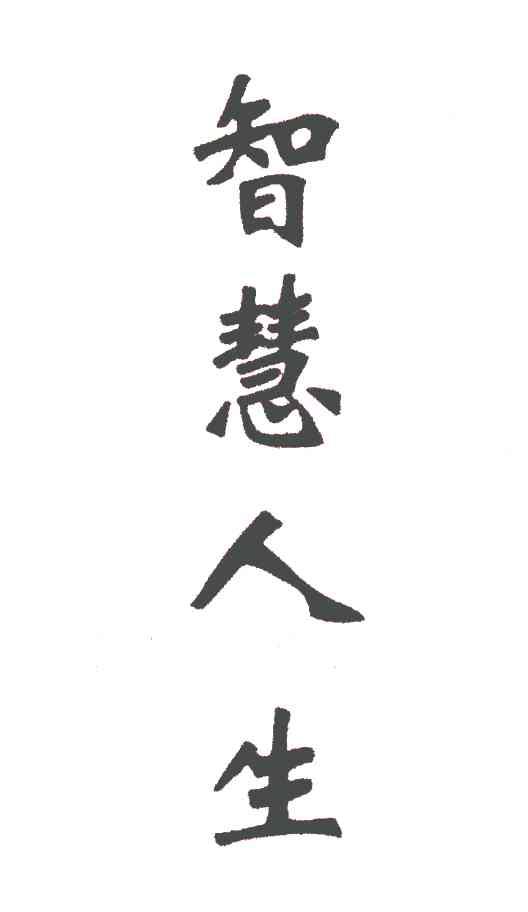 智慧人生